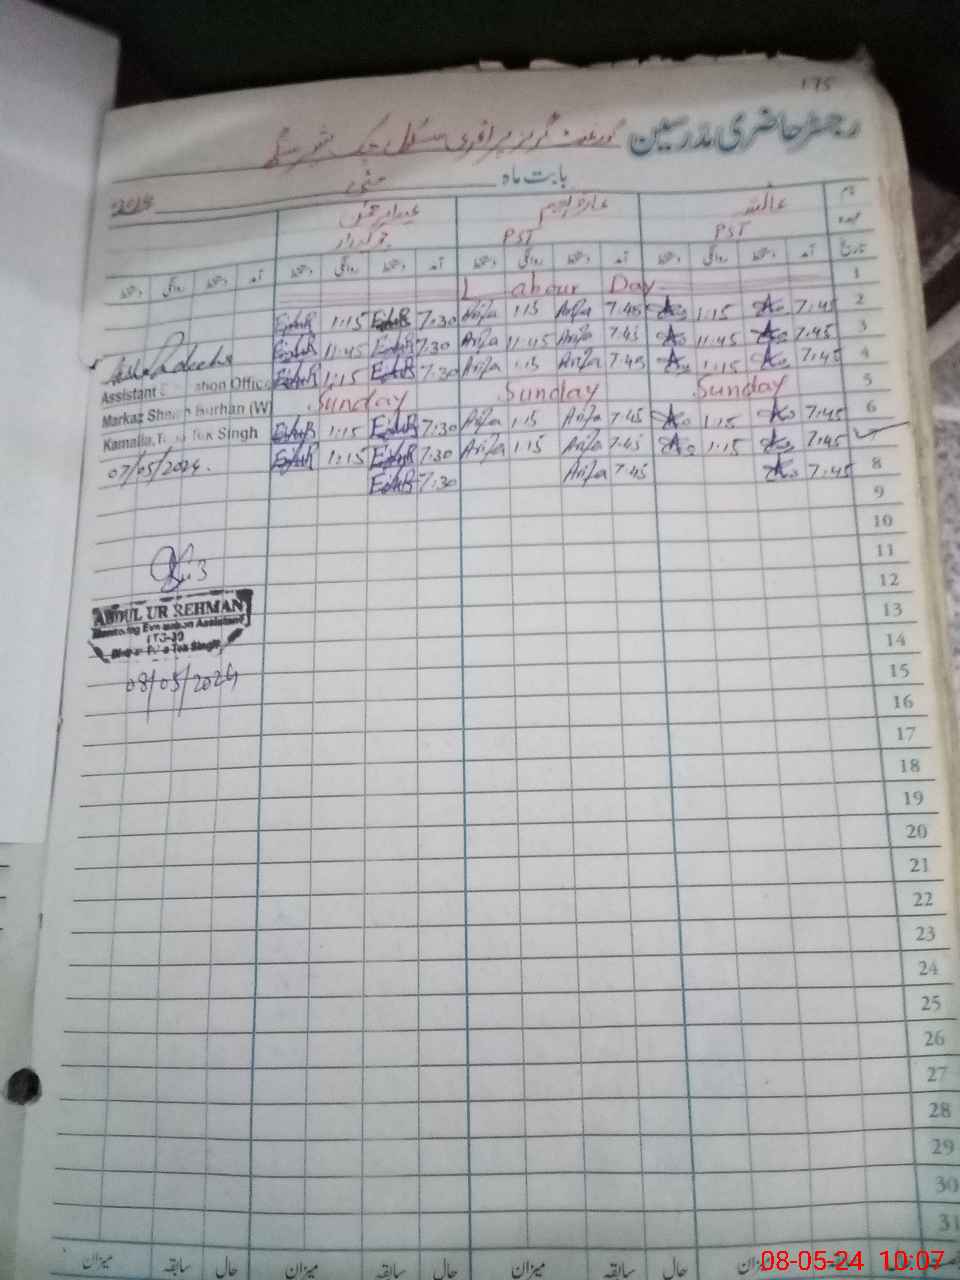 175
رجسٹر حاضری مدرسین گورنمنٹ گرلز پرائمری سکول چک
بابت ماہ مئی
نام عائشہ
عہدہ PST PST
تاریخ آمد دستخط روانگی دستخط آمد دستخط روانگی دستخط آمد دستخط روانگی دستخط آمد دستخط روانگی دستخط
1 Labour Day
2 7:45 1:15 7:45 Arifa 1:15 Arifa 7:30 1:15
3 7:45 11:45 7:45 Arifa 11:45 Arifa 7:30 11:45
4 7:45 1:15 7:45 Arifa 1:15 Arifa 7:30 1:15
5 Sunday Sunday Sunday
6 7:45 1:15 7:45 Arifa 1:15 Arifa 7:30 1:15
7 7:45 1:15 7:45 Arifa 1:15 Arifa 7:30 1:15
8 7:45 7:45 Arifa 7:30
Assistant Education Officer
Markaz Burhan (W)
Kamalia, Tek Singh
07/05/2024.
9
10
11
12
ABDUL UR REHMAN
13
Monitoring Evaluation Assistant
14
Tek Singh
15
08/05/2024
16
17
18
19
20
21
22
23
24
25
26
27
28
29
30
31
حال سابقہ میزان حال سابقہ میزان حال سابقہ میزان
08-05-24 10:07